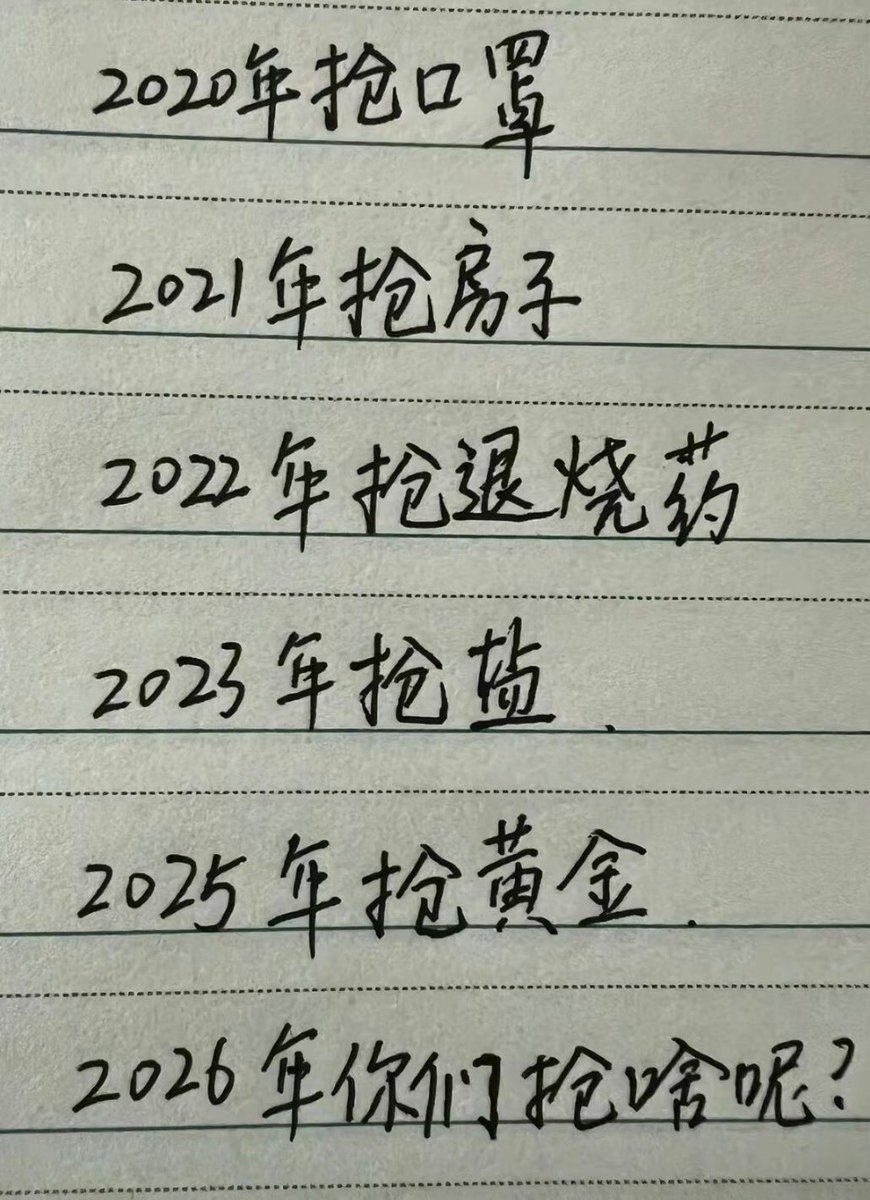 2020年抢口罩
2021年抢房子
2022年抢退烧药
2023年抢盐.
2025年抢黄金.
2026年你们抢啥呢?